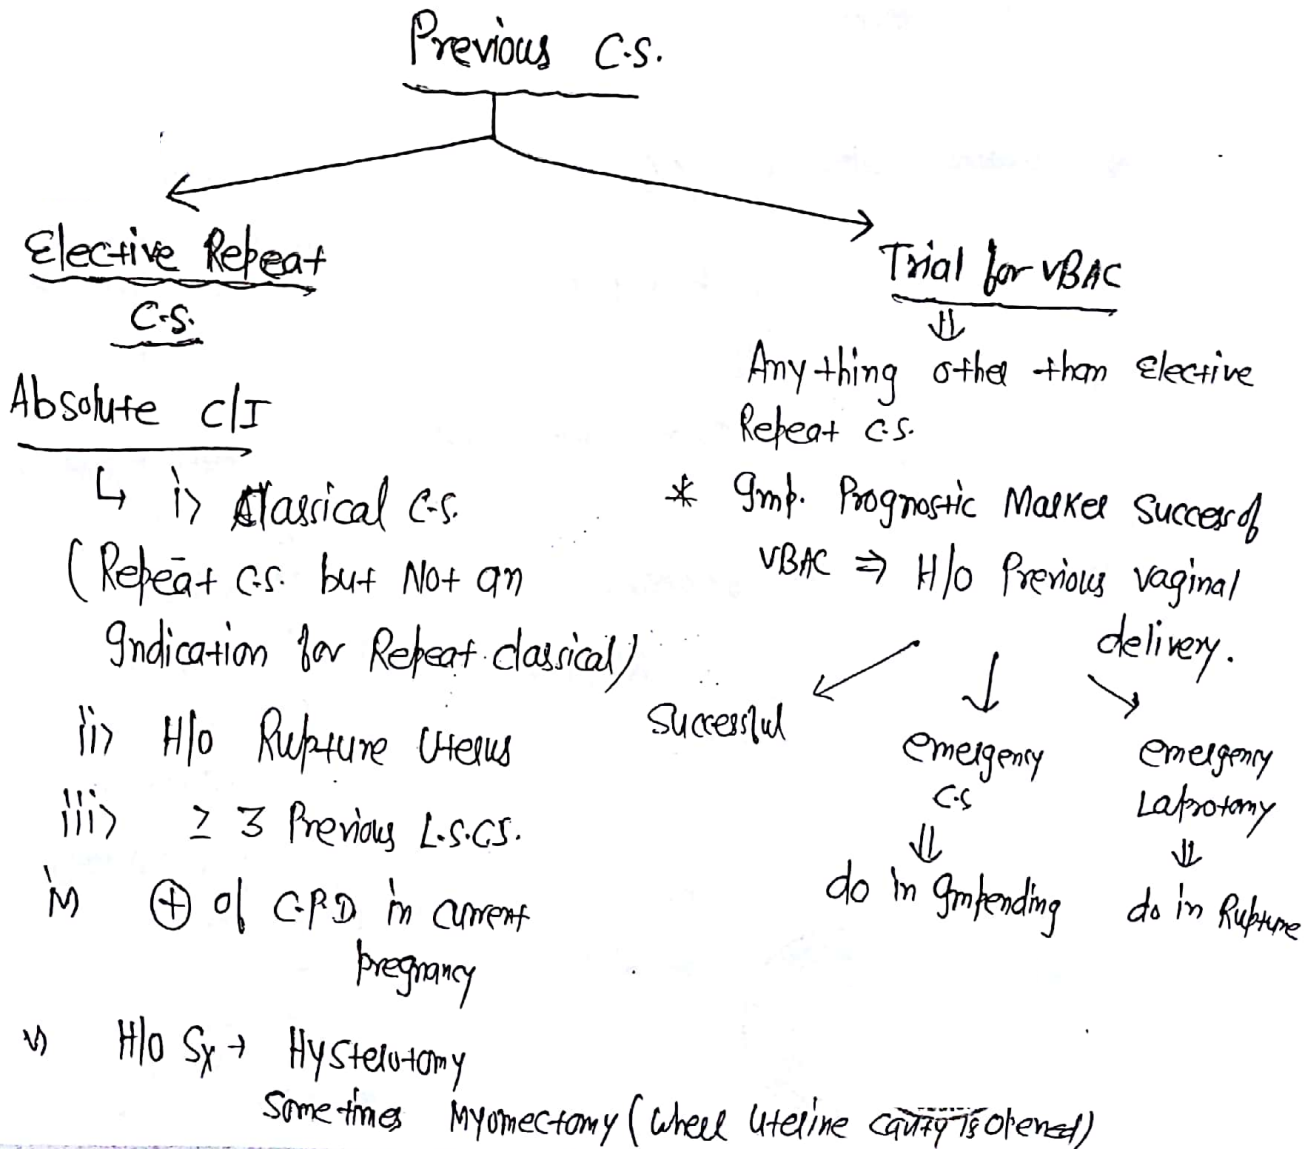 Previous C.S.
Elective Repeat
C.S.
Absolute C/I
↳ i> Classical C.S.
(Repeat C.S. but Not an
Indication for Repeat classical)
ii> H/O Rupture Uterus
iii> ≥ 3 Previous L.S.CS.
iv) ⊕ of C.P.D in current
pregnancy
v) H/O Sx → Hysterotomy
Sometimes Myomectomy (where Uterine cavity is opened)
Trial for VBAC
⇓
Anything other than Elective
Repeat C.S.
* Imp. Prognostic Marker Success of
VBAC ⇒ H/O Previous vaginal
delivery.
Successful
emergency
C.S
⇓
do in Impending
emergency
Laprotomy
⇓
do in Rupture